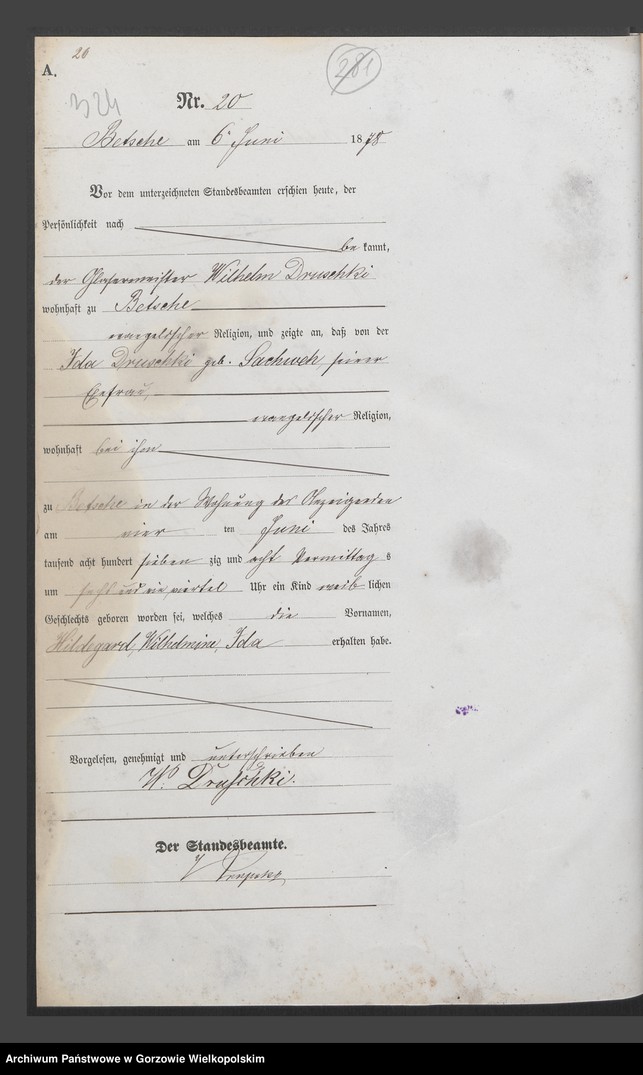 20
A.
281
324
Nr. 20
Betsche am 6 Juni 1878
Vor dem unterzeichneten Standesbeamten erschien heute, der
Persönlichkeit nach
be kannt,
der Glasermeister Wilhelm Druschki
wohnhaft zu Betsche
evangelischer Religion, und zeigte an, daß von der
Ida Druschki geb. Sachweh, seiner
Ehefrau,
evangelischer Religion,
wohnhaft bei ihm
zu Betsche in der Wohnung des Anzeigenden
am vier ten Juni des Jahres
tausend acht hundert sieben zig und acht Vormittag s
um ein viertel Uhr ein Kind weib lichen
Geschlechts geboren worden sei, welches die Vornamen,
Hildegard, Wilhelmine, Ida erhalten habe.
Vorgelesen, genehmigt und unterschrieben
W. Druschki.
Der Standesbeamte.
Archiwum Państwowe w Gorzowie Wielkopolskim